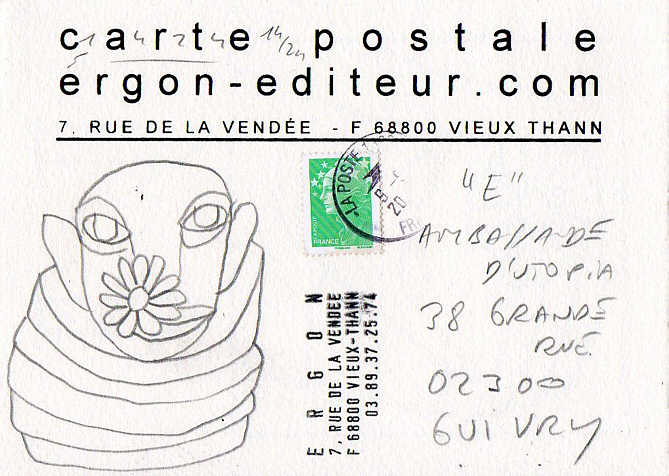 carte postale
14/24
ergon-editeur.com
7, RUE DE LA VENDÉE - F 68800 VIEUX THANN
LA POSTE
20
FR
FRANCE
"E"
AMBASSADE
D'UTOPIA
38 GRANDE
RUE
02300
GUIVRY
ERGON
7, RUE DE LA VENDEE
F 68800 VIEUX-THANN
03.89.37.25.74